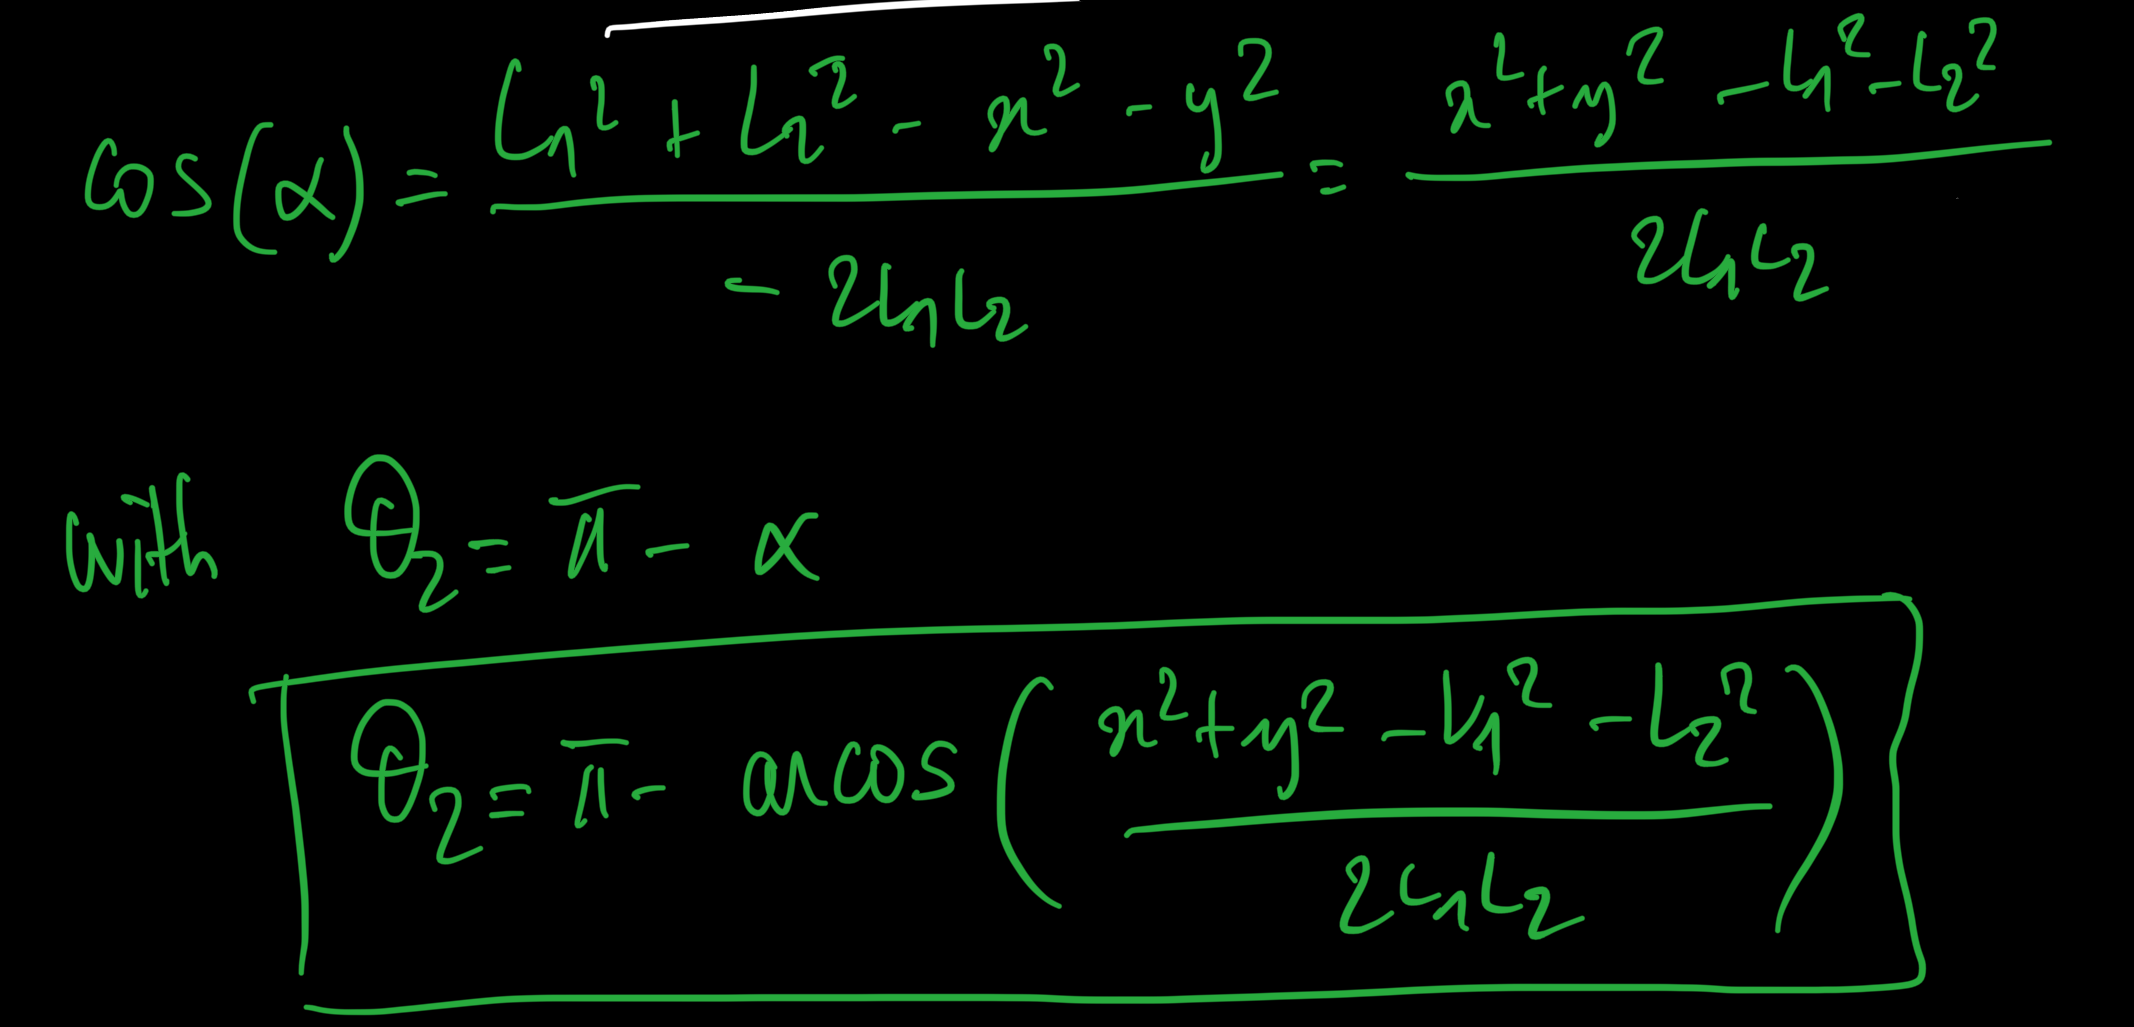 cos(α) = (L₁² + L₂² - x² - y²) / (- 2L₁L₂) = (x² + y² - L₁² - L₂²) / (2L₁L₂)
with θ₂ = π - α
θ₂ = π - acos((x² + y² - L₁² - L₂²) / (2L₁L₂))